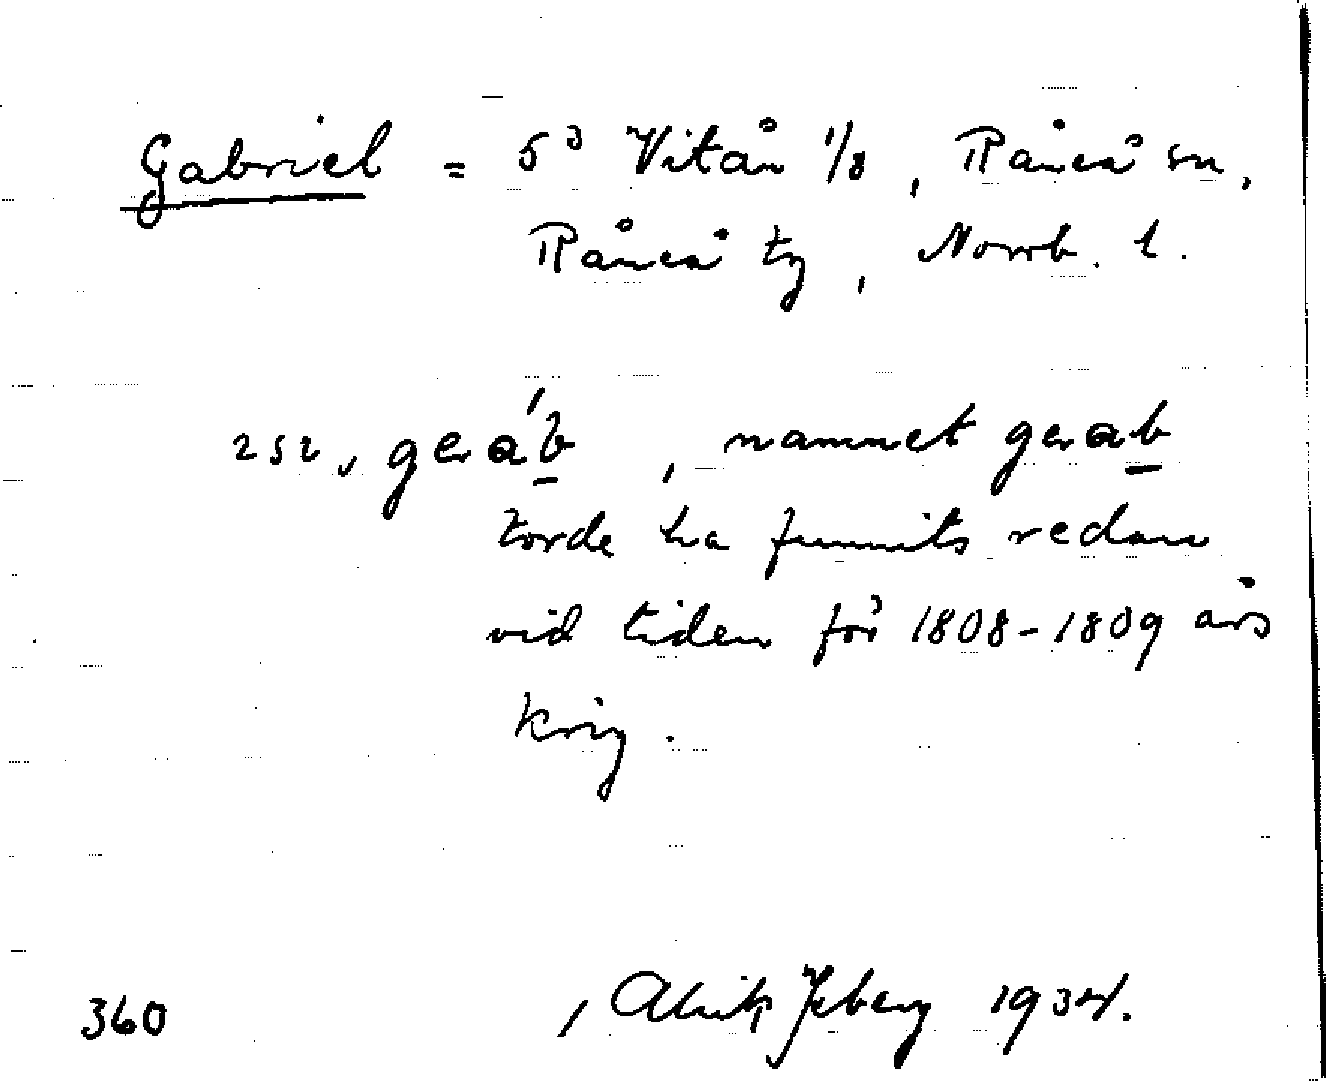 Gabriel = 5³ Vitån 1/8, Råneå sn,
Råneå tg, Norrb. l.
gerá̱b, namnet geraḇ
torde ha funnits redan
vid tiden för 1808-1809 års
krig.
360 , Alrik Ysberg 1934.